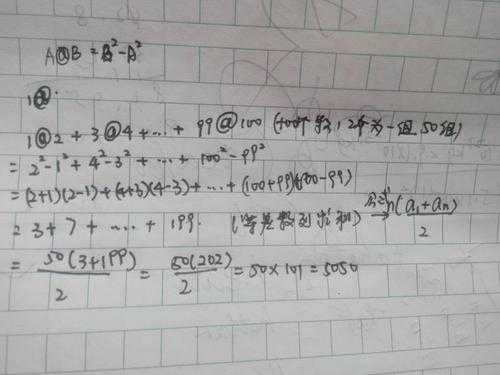 A@B = B²-A²
1@
1@2 + 3@4 + … + 99@100 (100个数,2个为一组 50组)
= 2²-1² + 4²-3² + … + 100²-99²
= (2+1)(2-1)+(4+3)(4-3)+…+(100+99)(100-99)
= 3+7+…+199. (等差数列求和) → n(a₁+aₙ)/2
= 50(3+199)/2 = 50(202)/2 = 50×101 = 5050